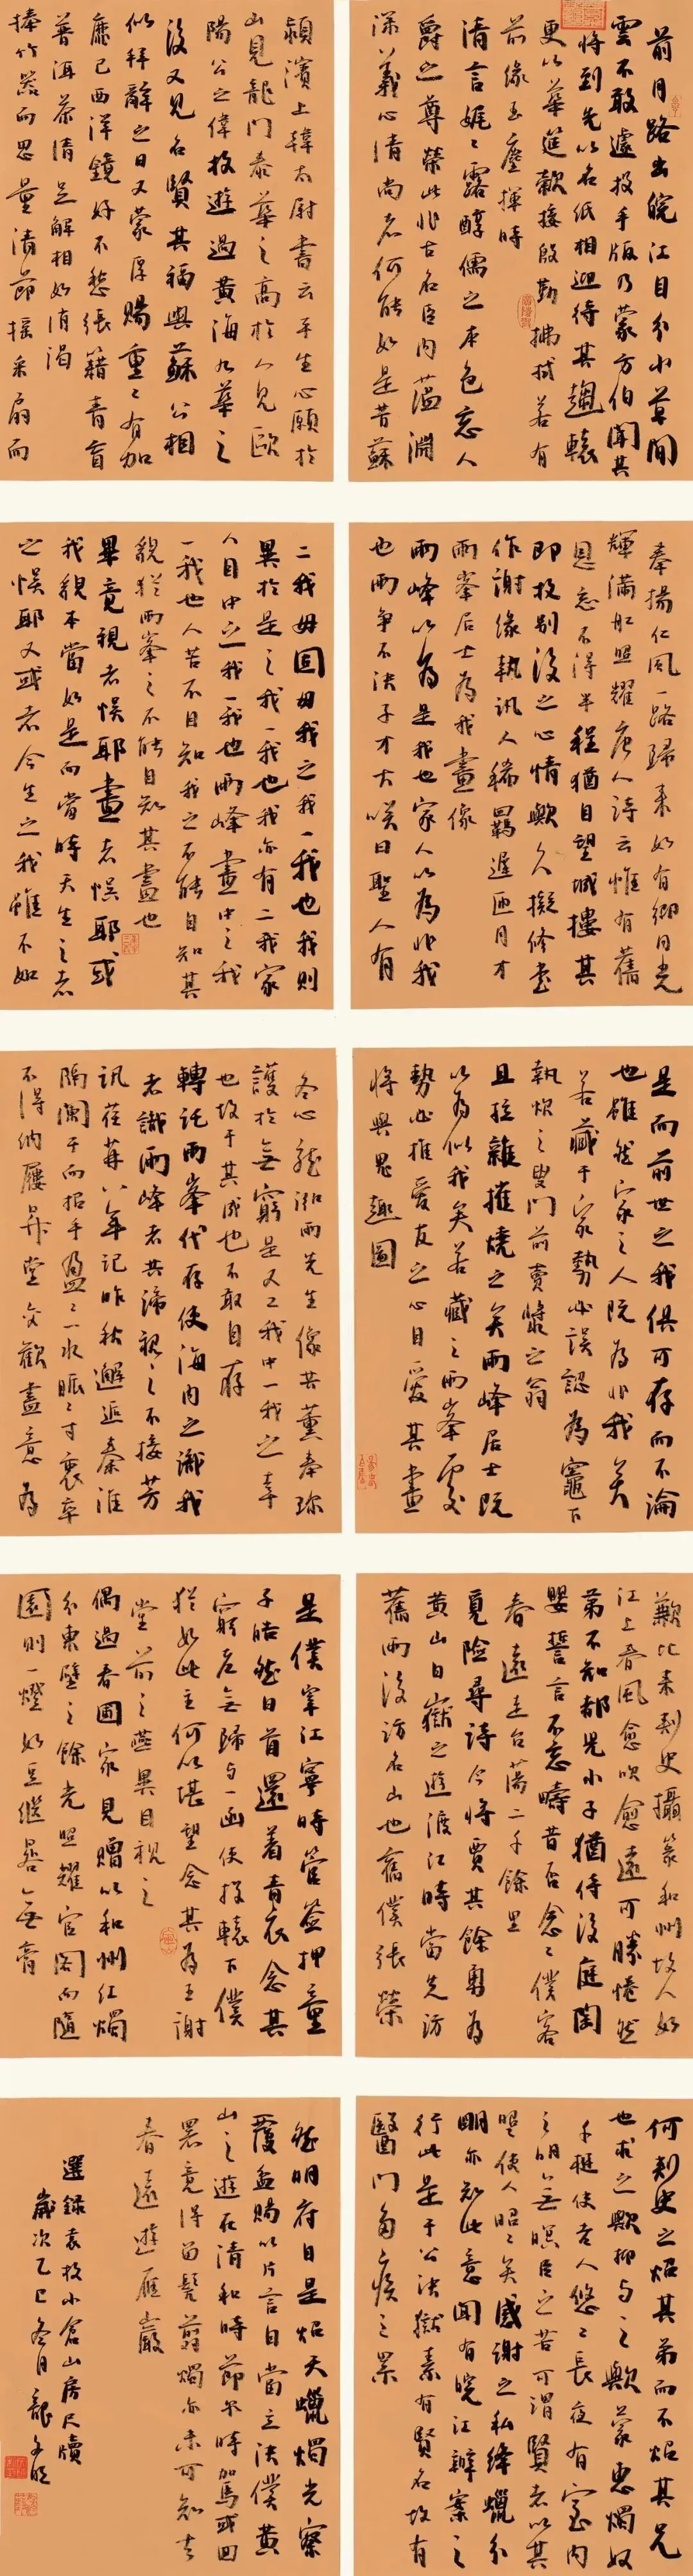 前月路出皖江自分小草間
雲不敢遽投手版乃蒙方伯聞其
將到先以名紙相迎待其趨轅
更以華筵款接殷勤拂拭若有
前緣玉麈揮時
清言娓娓露醇儒之本色忘人
爵之尊榮此非古名臣內蘊淵
深義心清尚者何能如是昔蘇
潁濱上韓太尉書云平生心願於
山見龍門泰華之高於人見歐
陽公之偉枚遊過黃海九華之
後又見名賢其福與蘇公相
似拜辭之日又蒙厚賜重重有加
廉已西洋鏡好不愁張籍青盲
普洱茶清足解相如消渴
捧竹器而思量清節搖采扇而
奉揚仁風一路歸來如有卿月光
輝滿船照耀唐人詩云惟有舊
恩忘不得半程猶自望城樓其
即枚別後之心情歟久擬修書
作謝緣執訊人稀羈遲匝月才
兩峯居士為我畫像
兩峰以為是我也家人以為非我
也兩爭不決子才大笑曰聖人有
二我毋固毋我之我一我也我則
異於是之我一我也我亦有二我家
人目中之我一我也兩峰畫中之我
一我也人苦不自知我之不能自知其
貌猶兩峯之不能自知其畫也
畢竟視者悞耶畫者悞耶或
我貌本當如是而當時天生之者
之悞耶又或者今生之我雖不如
是而前世之我俱可存而不論
也雖然家之人既為非我矣
若藏于家勢必誤認為竈下
執炊之叟門前賣漿之翁
且拉雜摧燒之矣兩峰居士既
以為似我矣若藏之兩峯處
勢必推愛友之心自愛其畫
將與鬼趣圖
冬心龍泓兩先生像共薰奉珍
護於無窮是又二我中一我之幸
也故于其成也不敢自存
轉託兩峯代存使海內之識我
者識兩峰者共諦視之不接芳
訊荏苒八年記昨秋邂逅秦淮
隔闌干而招手盈盈一水脈脈寸衷卒
不得納屨昇堂交歡盡意為
歉比來刺史攝篆和州故人如
江上春風愈吹愈遠可勝惓然
第不知都兄小子猶侍後庭閨
嬰誓言不忘疇昔否念念僕客
春遠走台蕩二千餘里
覓險尋詩今將賈其餘勇為
黃山白嶽之遊渡江時當先訪
舊雨後訪名山也舊僕張榮
是僕宰江寧時管簽押童
子皓然白首還着青衣念其
窮老無歸與一函使投轅下僕
猶如此主何以堪望念其為王謝
堂前之燕異目視之
偶過春圃家見贈以和州紅燭
分東壁之餘光照耀官閣而隨
園則一燈如豆繼晷無膏
何刺史之炤其弟而不炤其兄
也求之歟抑與之歟蒙惠燭奴
千挺使老人悠悠長夜有室內
之明無暝臣之苦可謂賢者以其
明使人昭昭矣感謝之私絳蠟分
明亦知此意聞有皖江辦案之
行此是于公決獄素有賢名故有
醫門多疾之累
然明府自是炤天蠟燭光察
覆盆賜以片言自當立決僕黃
山之遊在清和時節尔時加馬或回
署竟得留髡翦燭亦未可知去
春遠遊雁巖
選錄袁枚小倉山房尺牘
歲次乙巳冬月